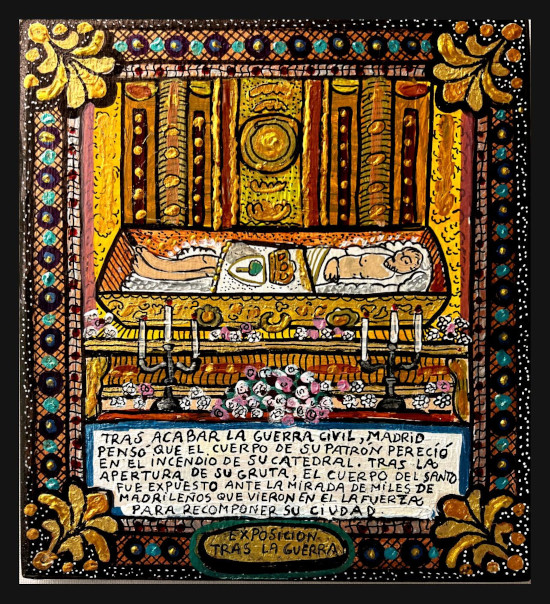 TRAS ACABAR LA GUERRA CIVIL, MADRID
PENSÓ QUE EL CUERPO DE SU PATRON PERECIÓ
EN EL INCENDIO DE SU CATEDRAL. TRAS LA
APERTURA DE SU GRUTA, EL CUERPO DEL SANTO
FUE EXPUESTO ANTE LA MIRADA DE MILES DE
MADRILEÑOS QUE VIERON EN EL LA FUERZA
PARA RECOMPONER SU CIUDAD
EXPOSICION
TRAS LA GUERRA